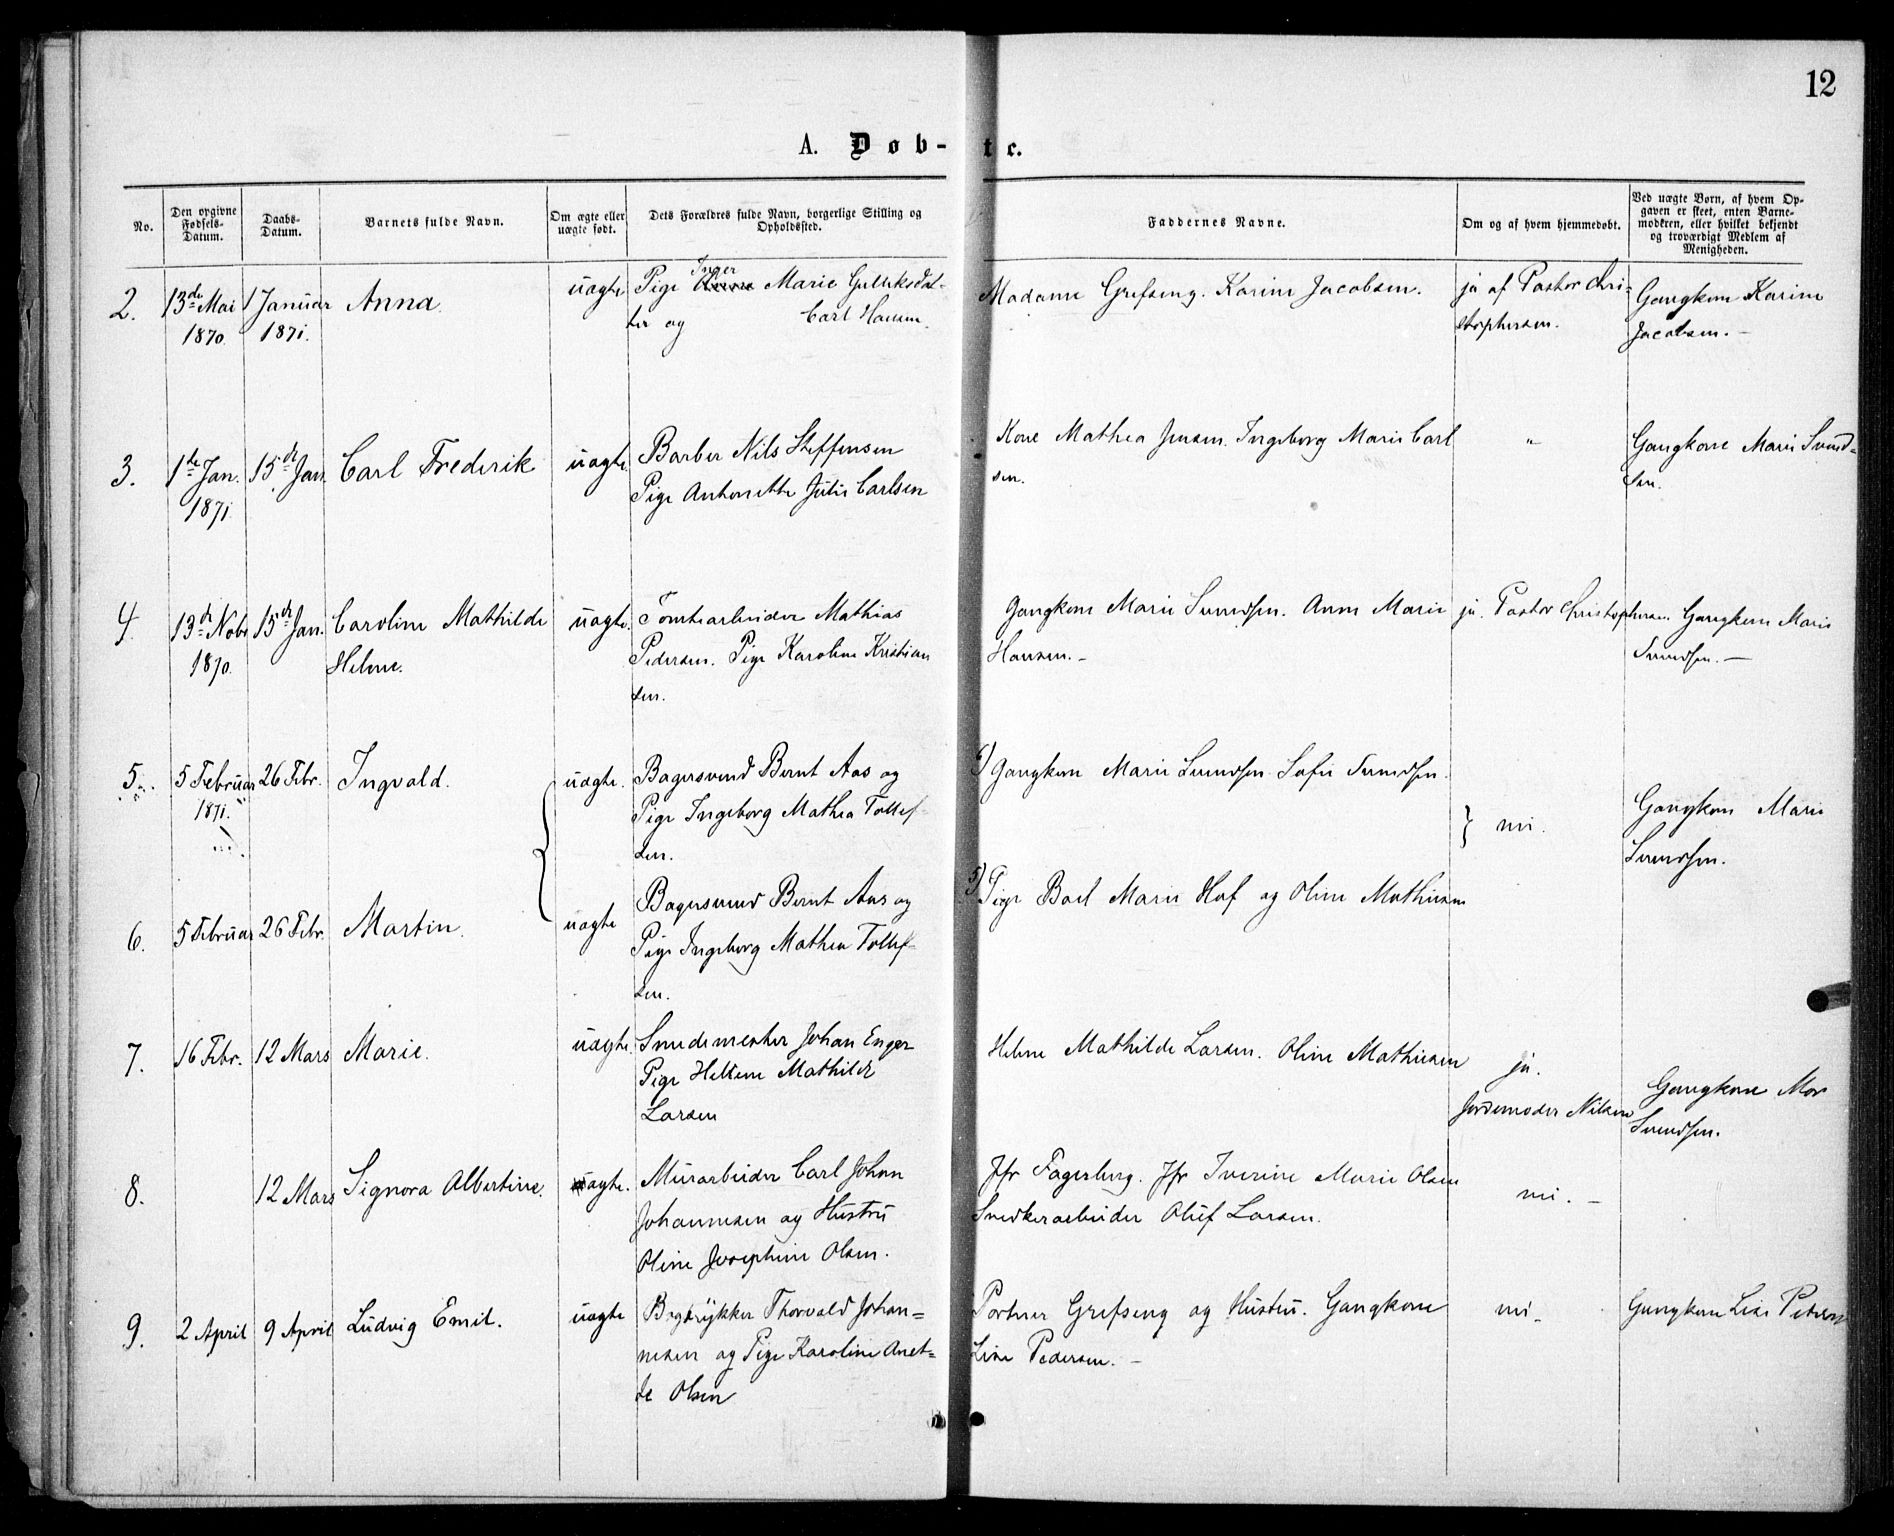 12
A. Døb-
te.
No.
Den opgivne Fødsels-Datum.
Daabs-Datum.
Barnets fulde Navn.
Om ægte eller uægte født.
Dets Forældres fulde Navn, borgerlige Stilling og Opholdssted.
Faddernes Navne.
Om og af hvem hjemmedøbt.
Ved uægte Børn, af hvem Opgaven er skeet, enten Barnemoderen, eller hvilket bekjendt og troværdigt Medlem af Menigheden.
2. 13de Mai 1 Januar Anna. uægte Pige Inger Marie Gulliksdat- Madame Grefseng. Karine Jacobsen. ja af Pastor Chri- Gangkone Karine
1870. 1871. ter og Carl Hansen. stophersen. Jacobsen. –
3. 1te Jan. 15de Jan. Carl Frederik uægte. Barber Nils Steffensen Kone Mathea Jensen. Ingeborg Marie Carl „ Gangkone Marie Svend-
1871. Pige Antonette Julie Carlsen sen. sen.
4. 13de Nobr 15de Jan. Caroline Mathilde uægte. Tomtearbeider Mathias Gangkone Marie Svendsen. Anne Marie ja. Pastor Christophersen. Gangkone Marie
1870. Helene. Pedersen. Pige Karoline Kristian Hansen. – Svendsen. –
sen.
5. 5 Februar 26 Febr. Ingvald. uægte. Bagersvend Bernt Aas og 6) Gangkone Marie Svendsen. Sofie Svendsen.
1871. Pige Ingeborg Mathea Tollef- } nei. Gangkone Marie
sen. Svendsen.
6. 5 Februar 26 Febr. Martin. uægte Bagersvend Bernt Aas og 5) Pige Boel Marie Hof og Oline Mathiesen
Pige Ingeborg Mathea Tollef-
sen.
7. 16 Febr. 12 Mars Marie. uægte. Smedemester Johan Enger Helene Mathilde Larsen. Oline Mathiesen ja.
Pige Helene Mathilde Jordemoder Nilsen Gangkone Mar
Larsen Svendsen.
8. 12 Mars Signora Albertine. ægte. Murarbeider Carl Johan Jfr Fagerberg. Jfr Iverine Marie Olsen nei. –
Johannesen og Hustru Snedkerarbeider Oluf Larsen.
Oline Josephine Olsen.
9. 2 April 9 April Ludvig Emil. uægte Bogtrykker Thorvald Johan- Portner Grefseng og Hustru. Gangkone nei. Gangkone Lise Petersen
nesen og Pige Karoline Anet- Lise Pedersen. –
te Olsen